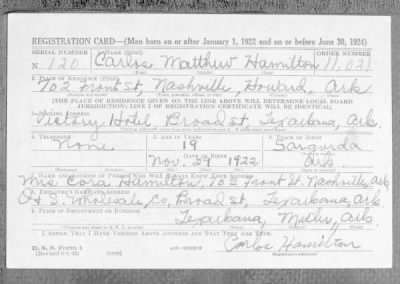 REGISTRATION CARD—(Men born on or after January 1, 1922 and on or before June 30, 1924)
SERIAL NUMBER 1. NAME (Print) ORDER NUMBER
N 120 Carlos Matthew Hamilton 11,021
(First) (Middle) (Last)
2. PLACE OF RESIDENCE (Print)
702 Front St, Nashville, Howard, Ark
[THE PLACE OF RESIDENCE GIVEN ON THE LINE ABOVE WILL DETERMINE LOCAL BOARD
JURISDICTION; LINE 2 OF REGISTRATION CERTIFICATE WILL BE IDENTICAL]
3. MAILING ADDRESS
Victory Hotel Broad St, Texarkana, Ark.
4. TELEPHONE 5. AGE IN YEARS 6. PLACE OF BIRTH
None 19
DATE OF BIRTH
Nov. 29 1922 Ark.
7. NAME AND ADDRESS OF PERSON WHO WILL ALWAYS KNOW YOUR ADDRESS
Mrs Cora Hamilton, 702 Front St. Nashville, Ark
8. EMPLOYER'S NAME AND ADDRESS
Wholesale Co, Broad St, Texarkana, Ark.
9. PLACE OF EMPLOYMENT OR BUSINESS
Texarkana, Miller, Ark
I AFFIRM THAT I HAVE VERIFIED ABOVE ANSWERS AND THAT THEY ARE TRUE.
D. S. S. FORM 1
Carlos Hamilton